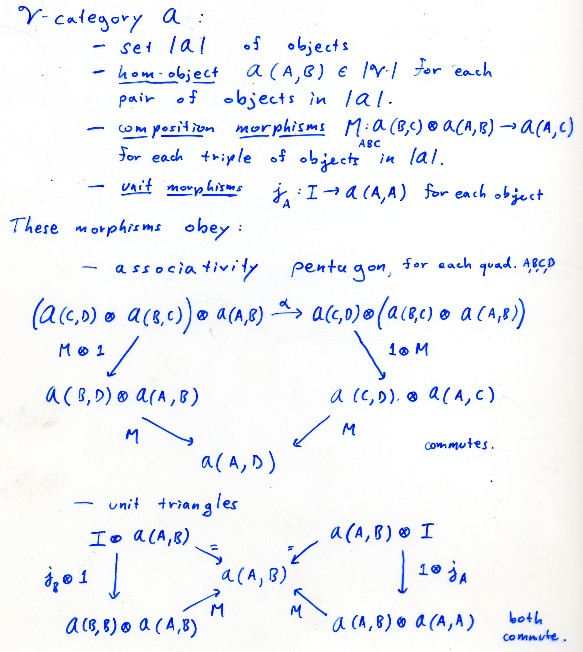 𝒱-category 𝒜 :
- set |𝒜| of objects
- hom-object 𝒜(A,B) ∈ |𝒱| for each
pair of objects in |𝒜|.
- composition morphisms M_ABC : 𝒜(B,C) ⊗ 𝒜(A,B) → 𝒜(A,C)
for each triple of objects in |𝒜|.
- unit morphisms j_A : I → 𝒜(A,A) for each object
These morphisms obey :
- associativity pentagon, for each quad. A,B,C,D
(𝒜(C,D) ⊗ 𝒜(B,C)) ⊗ 𝒜(A,B) →α 𝒜(C,D) ⊗ (𝒜(B,C) ⊗ 𝒜(A,B))
M ⊗ 1 1 ⊗ M
𝒜(B,D) ⊗ 𝒜(A,B) 𝒜(C,D) ⊗ 𝒜(A,C)
M M
commutes.
𝒜(A,D)
- unit triangles
I ⊗ 𝒜(A,B) = = 𝒜(A,B) ⊗ I
j_B ⊗ 1 𝒜(A,B) 1 ⊗ j_A
M M
𝒜(B,B) ⊗ 𝒜(A,B) 𝒜(A,B) ⊗ 𝒜(A,A) both
commute.